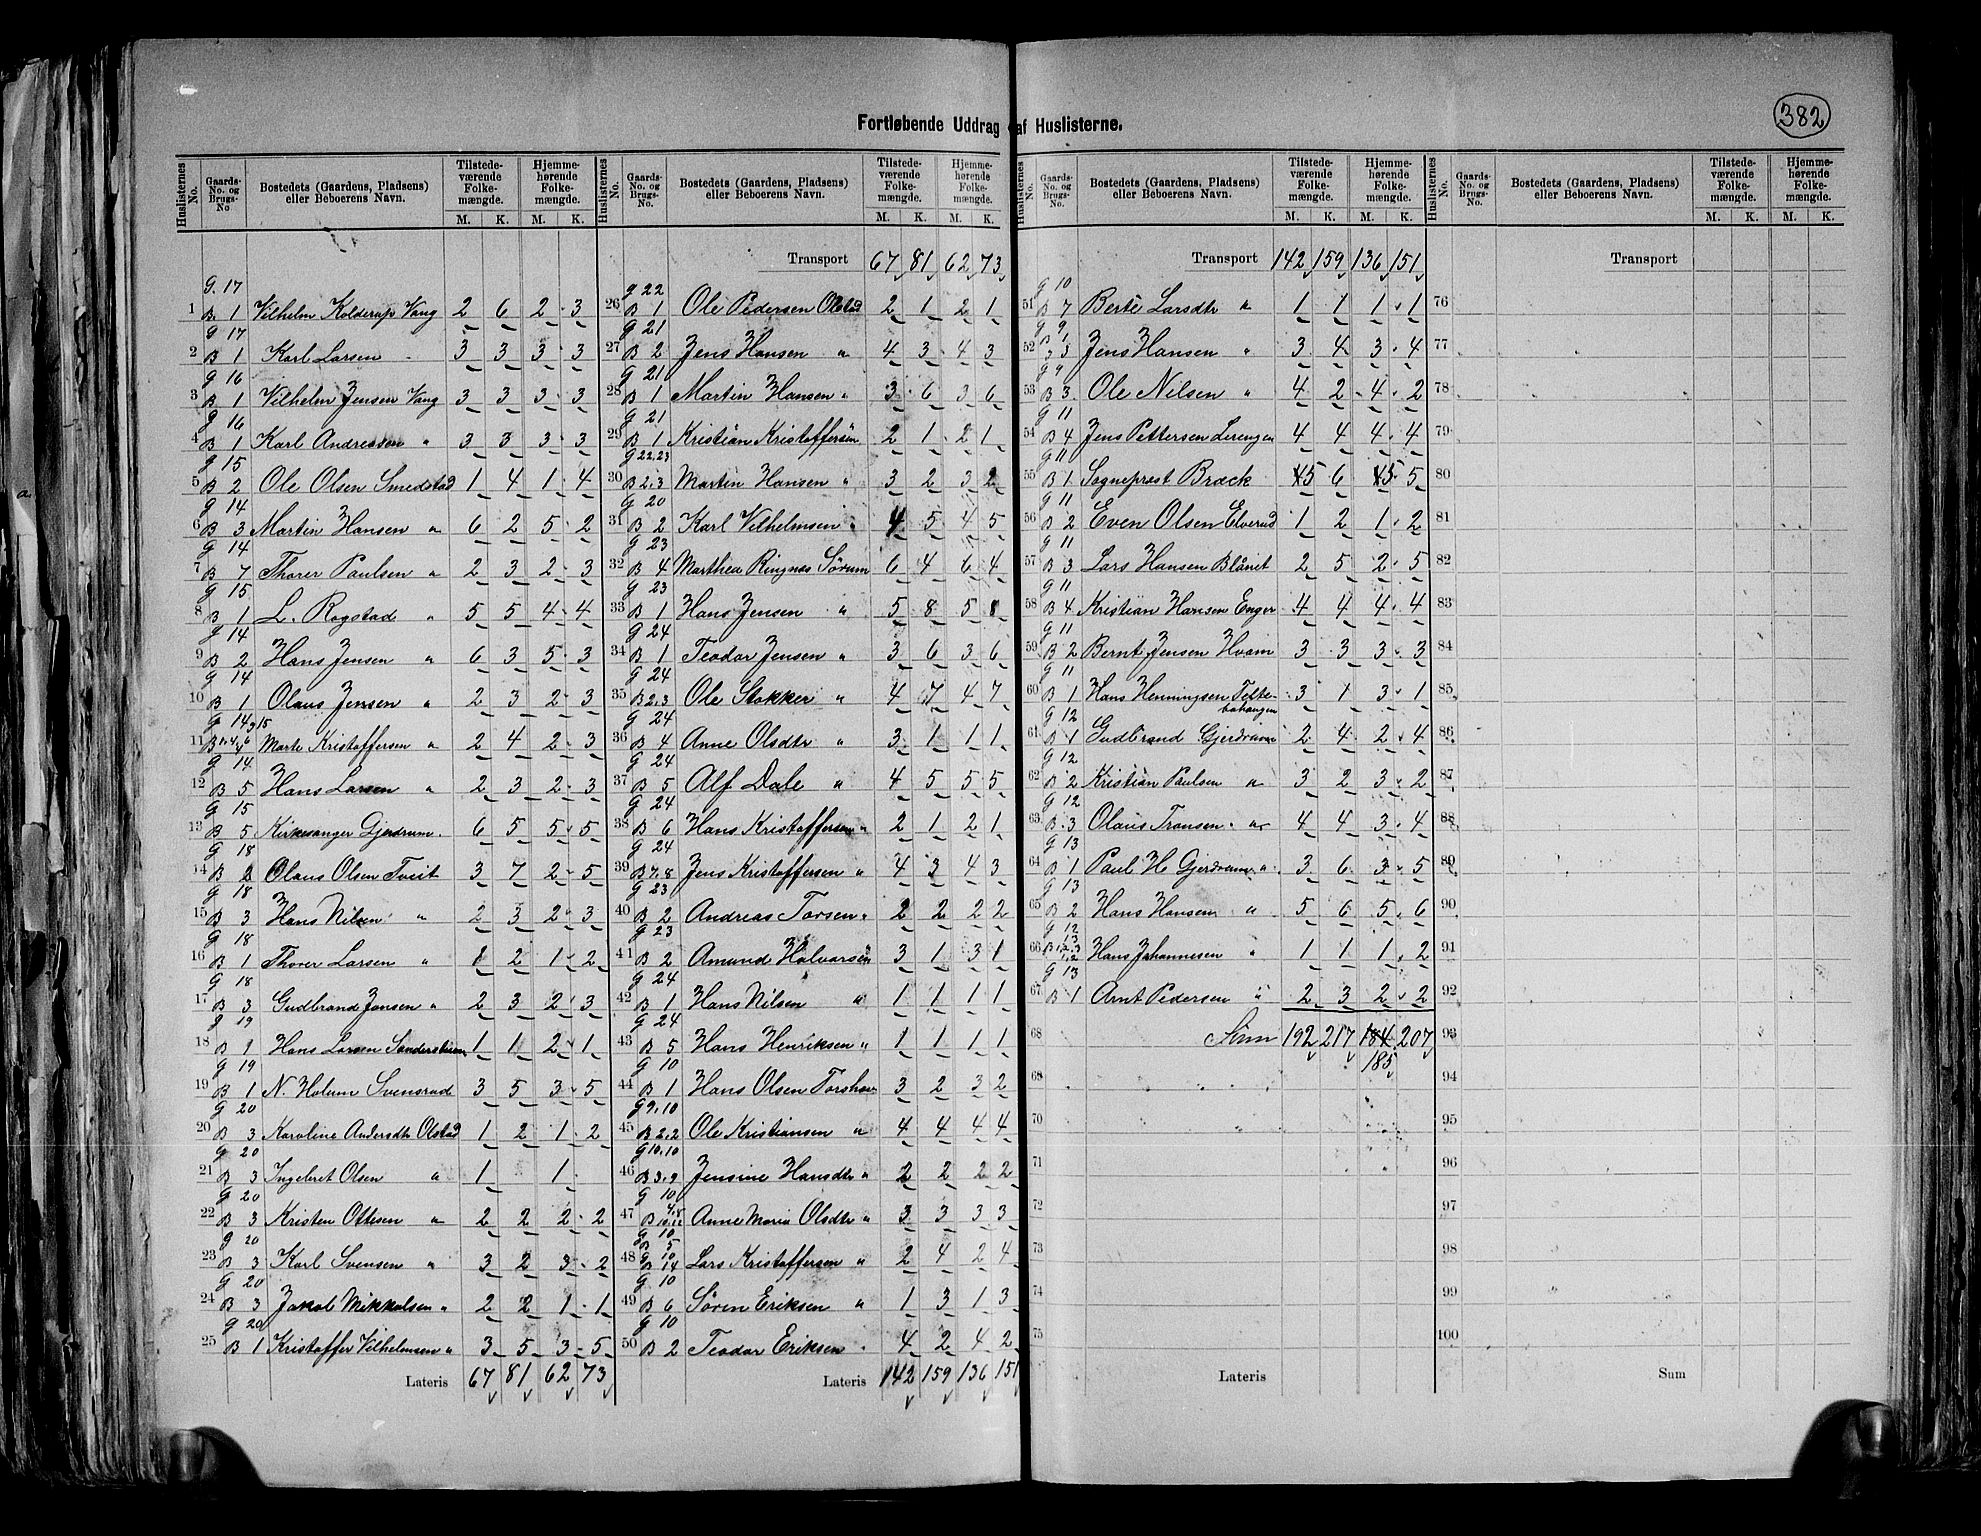 382
Fortløbende Uddrag af Huslisterne.
Huslisternes No. | Gaards-No. og Brugs-No | Bostedets (Gaardens, Pladsens) eller Beboerens Navn. | Tilstedeværende Folkemængde. M. K. | Hjemmehørende Folkemængde. M. K.
G. 17
1 B 1 Vilhelm Kolderup Vang 2 6 2 3
G 17
2 B 1 Karl Larsen 3 3 3 3
G 16
3 B 1 Vilhelm Jensen Vang 3 3 3 3
G 16
4 B 1 Karl Andreasen " 3 3 3 3
G 15
5 B 2 Ole Olsen Smedstad 1 4 1 4
G 14
6 B 3 Martin Hansen " 6 2 5 2
G 14
7 B 7 Thorer Paulsen " 2 3 2 3
G 15
8 B 1 L. Rogstad " 5 5 4 4
G 14
9 B 2 Hans Jensen " 6 3 5 3
G 14
10 B 1 Olaus Jensen " 2 3 2 3
G 14 g 15
11 Marte Kristoffersen " 2 4 2 3
G 14
12 B 5 Hans Larsen " 2 3 2 3
G 15
13 B 5 Kirkesanger Gjerdrum. 6 5 5 5
G 18
14 B 2 Olaus Olsen Tveit 3 7 2 5
G 18
15 B 3 Hans Nilsen " 2 3 2 3
G 18
16 B 1 Thorer Larsen " 1 2 1 2
G 18
17 B 3 Gudbrand Jensen " 2 3 2 3
G 19
18 B 1 Hans Larsen 1 1 2 1
G 19
19 B 1 N. Holum Svensrud 3 5 3 5
G 20
20 B 3 Karoline Andersdtr Olstad 1 2 1 2
G 20
21 B 3 Ingebret Olsen " 1 1
G 20
22 B 3 Kristen Ottesen " 2 2 2 2
G 20
23 B 3 Karl Svensen " 3 2 3 2
G 20
24 B 3 Jakob Mikkelsen " 2 2 1 1
G 20
25 B 1 Kristoffer Vilhelmsen " 3 5 3 5
Lateris 67 81 62 73
Huslisternes No. | Gaards-No. og Brugs-No. | Bostedets (Gaardens, Pladsens) eller Beboerens Navn. | Tilstedeværende Folkemængde. M. K. | Hjemmehørende Folkemængde. M. K.
Transport 67 81 62 73
G 22
26 B 1 Ole Pedersen Olstad 2 1 2 1
G 21
27 B 2 Jens Hansen " 4 3 4 3
G 21
28 B 1 Martin Hansen " 3 6 3 6
G 21
29 B 1 Kristian Kristoffersen 2 1 2 1
G 22.23
30 B 2.3 Martin Hansen " 3 2 3 2
G 20
31 B 2 Karl Vilhelmsen " 4 5 4 5
G 23
32 B 4 Marthea Ringnes Sørum 6 4 6 4
G 23
33 B 1 Hans Jensen " 5 8 5 8
G 24
34 B 1 Teodor Jensen " 3 6 3 6
G 24
35 B 2.3 Ole Stokker " 4 7 4 7
G 24
36 B 4 Anne Olsdtr " 3 1 1 1
G 24
37 B 5 Alf Dale " 4 5 5 5
G 24
38 B 6 Hans Kristoffersen " 2 1 2 1
G 24
39 B 7.8 Jens Kristoffersen " 4 3 4 3
G 23
40 B 2 Andreas Torsen " 2 2 2 2
G 23
41 B 2 Amund Halvorsen 3 1 3 1
G 24
42 B 1 Hans Nilsen " 1 1 1 1
G 24
43 B 5 Hans Henriksen " 1 1 1 1
G 10
44 B 1 Hans Olsen Torshov 3 2 3 2
G 9.10
45 B 2.2 Ole Kristiansen " 4 4 4 4
G 10.10
46 B 3.9 Jensine Hansdtr " 2 2 2 2
G 10
47 B Anne Maria Olsdtr " 3 3 3 3
G 10
B 5
G 10
48 B 14 Lars Kristoffersen " 2 4 2 4
G 10
49 B 6 Søren Eriksen " 1 3 1 3
G 10
50 B 2 Teodor Eriksen 4 2 4 2
Lateris 142 159 136 151
Huslisternes No. | Gaards-No. og Brugs-No. | Bostedets (Gaardens, Pladsens) eller Beboerens Navn. | Tilstedeværende Folkemængde. M. K. | Hjemmehørende Folkemængde. M. K.
Transport 142 159 136 151
G 10
51 B 7 Berte Larsdtr " 1 1 1 1
G 9
52 Jens Hansen " 3 4 3 4
G 9
53 B 3 Ole Nilsen " 4 2 4 2
G 11
54 B 4 Jens Pettersen Lerengen 4 4 4 4
G 11
55 B 1 Sogneprest Bræck 5 6 5 5
G 11
56 B 2 Even Olsen Elverud 1 2 1 2
G 11
57 B 3 Lars Hansen 2 5 2 5
G 11
58 B 4 Kristian Hansen Enger 4 4 4 4
G 11
59 B 2 Bernt Jensen Hvam 3 3 3 3
G 11
60 B 1 Hans Henningsen 3 1 3 1
G 12
61 B 1 Gudbrand Gjerdrum 2 4 2 4
G 12
62 B 2 Kristian Paulsen " 3 2 3 2
G 12
63 B 3 Olaus Tronsen " 4 4 3 4
G 13
64 B 1 Paul H. Gjerdrum " 3 6 3 5
G 13
65 B 2 Hans Hansen " 5 6 5 6
G 12
13
66 Hans Johannesen " 1 1 1 2
G 13
67 B 1 Arnt Pedersen " 2 3 2 2
68 Sum 192 217 184 207
185
68
70
71
72
73
74
75
Lateris
Huslisternes No. | Gaards-No. og Brugs-No. | Bostedets (Gaardens, Pladsens) eller Beboerens Navn. | Tilstedeværende Folkemængde. M. K. | Hjemmehørende Folkemængde. M. K.
Transport
76
77
78
79
80
81
82
83
84
85
86
87
88
89
90
91
92
93
94
95
96
97
98
99
100
Sum